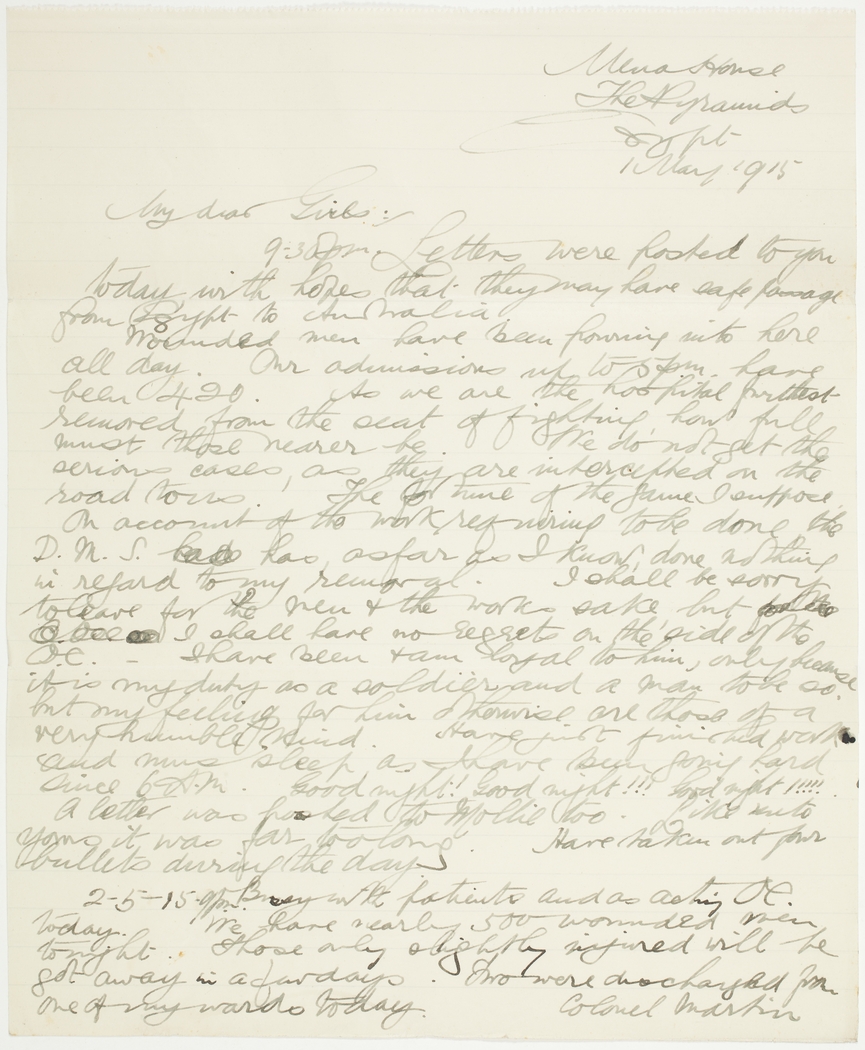 Mena House
The Pyramids
Egypt
1 May 1915
My dear Girls:-
9-30pm. Letters were posted to you
today with hopes that they may have safe passage
from Egypt to Australia
Wounded men have been pouring into here
all day. Our admissions up to 5pm. have
been 420. As we are the hospital furthest
removed from the seat of fighting, how full
must those nearer be. We do not get the
serious cases, as they are intercepted on the
road to us. The fortune of the game I suppose
On account of the work requiring to be done the
D. M. S. has, as far as I know, done nothing
in regard to my removal. I shall be sorry
to leave for the men & the works sake but
I shall have no regrets on the side of the
O.C. - I have been & am loyal to him, only because
it is my duty as a soldier and a man to be so.
but my feeling for him otherwise are those of a
very humble kind. Have just finished work
and must sleep as I have been going hard
since 6 AM. Good night!! Good night!!! Good night!!!!!
A letter was posted to Mollie too. Like unto
yours it was far too long. Have taken out four
bullets during the day
2-5-15-9pm. Busy with patients and as acting O.C.
today. We have nearly 500 wounded men
tonight. Those only slightly injured will be
got away in a few days. Two were discharged from
one of my wards today. Colonel Martin